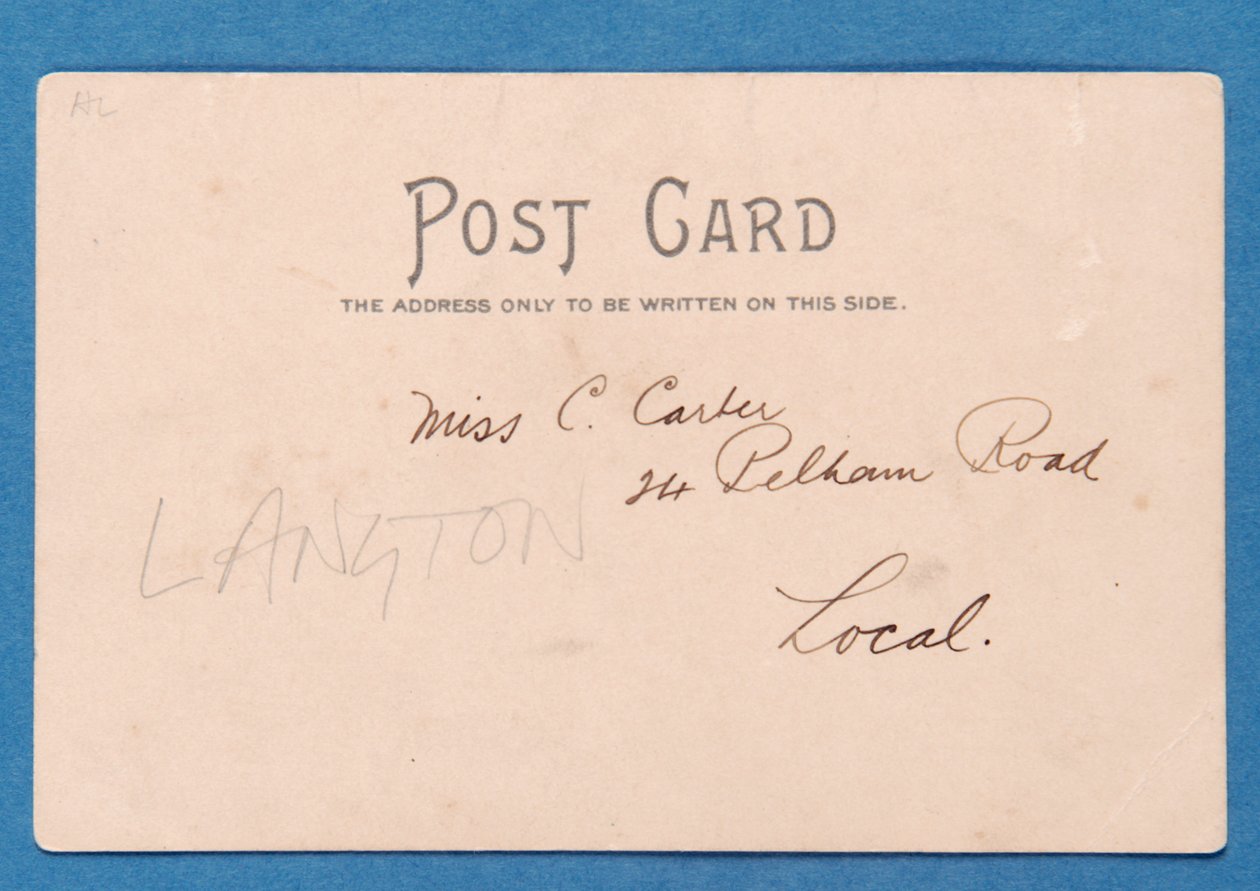 HL
POST CARD
THE ADDRESS ONLY TO BE WRITTEN ON THIS SIDE.
Miss C. Carter
24 Pelham Road
LANGTON
Local.